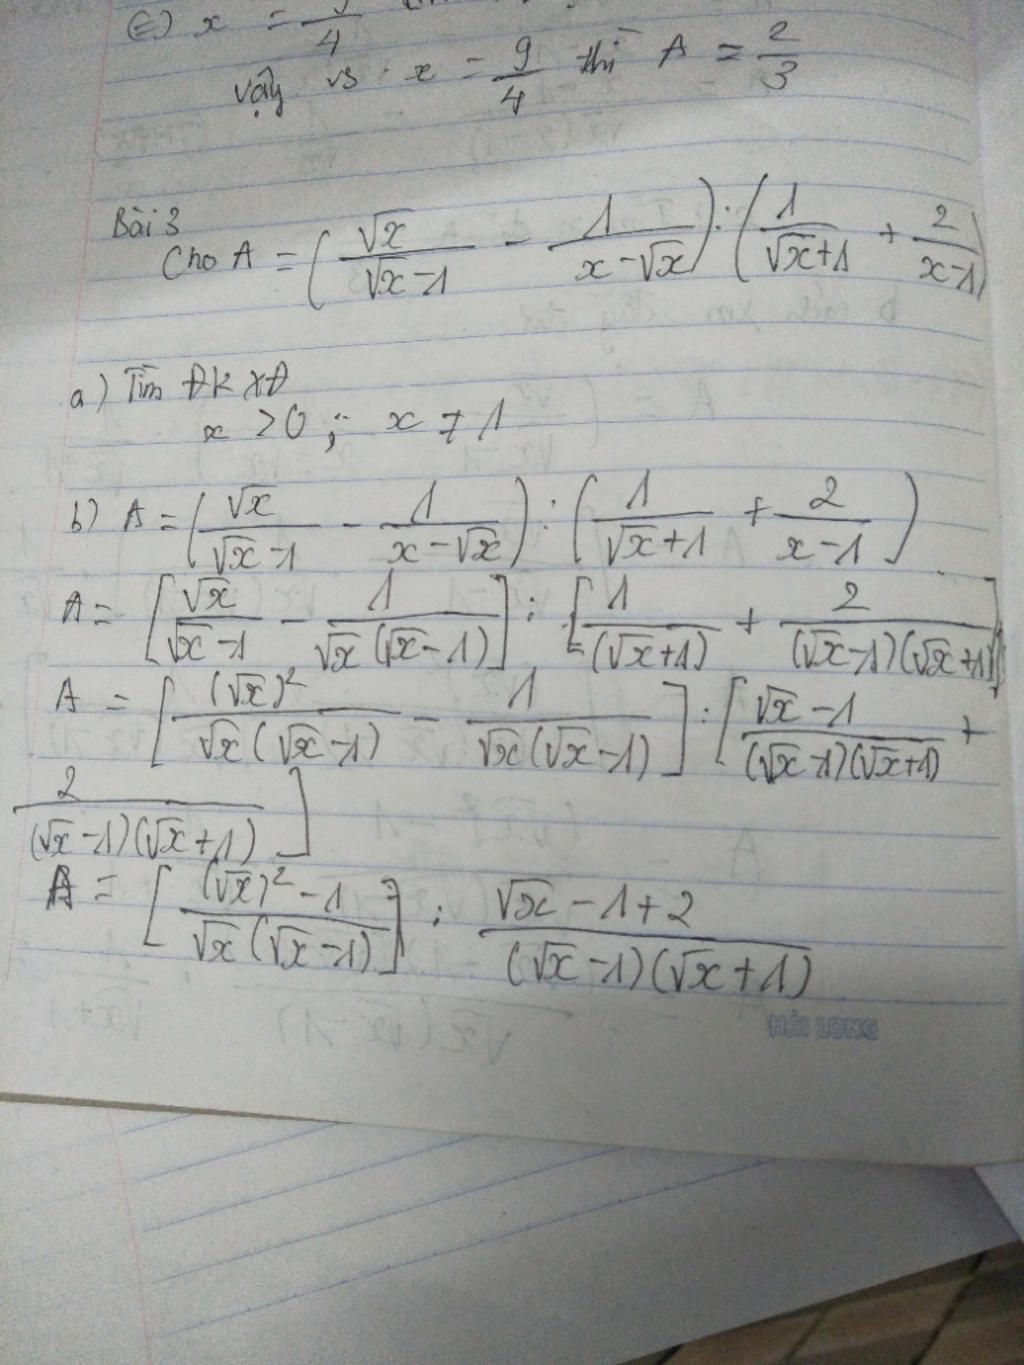 (=) x = 9/4
Vậy vs x = 9/4 thì A = 2/3
Bài 3
Cho A = (√x/(√x-1) - 1/(x-√x)) : (1/(√x+1) + 2/(x-1))
a) Tìm ĐKXĐ
x > 0 ; x ≠ 1
b) A = (√x/(√x-1) - 1/(x-√x)) : (1/(√x+1) + 2/(x-1))
A = [√x/(√x-1) - 1/(√x(√x-1))] : [1/((√x+1)) + 2/((√x-1)(√x+1))]
A = [(√x)²/(√x(√x-1)) - 1/(√x(√x-1))] : [(√x-1)/((√x-1)(√x+1)) +
2/((√x-1)(√x+1))]
A = [((√x)²-1)/(√x(√x-1))] : (√x-1+2)/((√x-1)(√x+1))
HẢI LONG